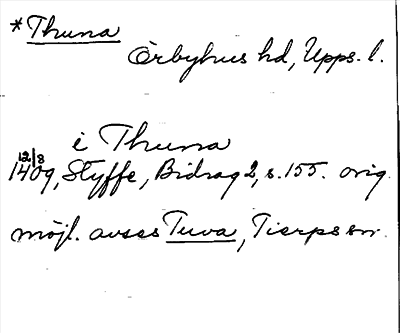 *Thuna
Örbyhus hd, Upps. l.
i Thuna
12/8
1409, Styffe, Bidrag 2, s. 155. orig.
möjl. avses Tuva, Tierps sn.